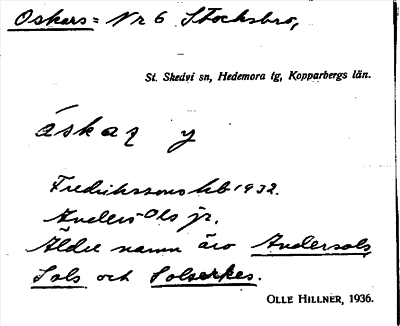 Oskars = Nr 6 Stocksbro,
St. Skedvi sn, Hedemora tg, Kopparbergs län.
áskaz y
Fredrikssons hb 1932.
Anders-Ols jr.
Äldre namn äro Andersols,
Sols och Solserkes.
OLLE HILLNER, 1936.